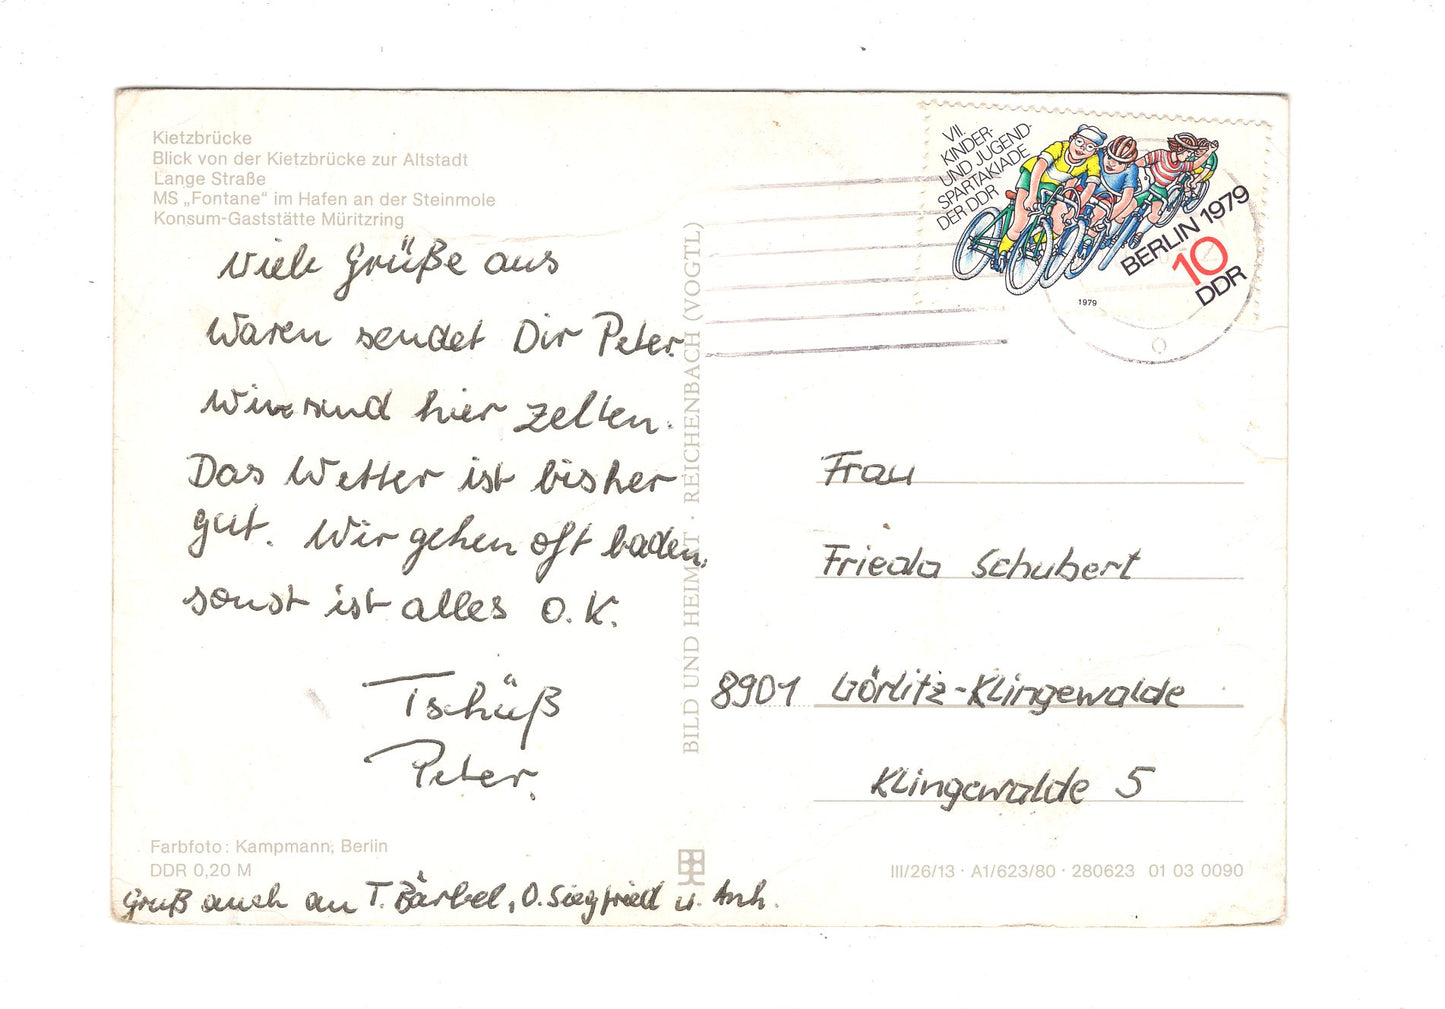 Kietzbrücke
Blick von der Kietzbrücke zur Altstadt
Lange Straße
MS „Fontane“ im Hafen an der Steinmole
Konsum-Gaststätte Müritzring
Viele Grüße aus
Waren sendet Dir Peter.
Wir sind hier zelten.
Das Wetter ist bisher
gut. Wir gehen oft baden,
sonst ist alles O.K.
Tschüß
Peter.
Farbfoto: Kampmann, Berlin
DDR 0,20 M
Gruß auch an T. Bärbel, O. Siegfried u. Anh.
BILD UND HEIMAT · REICHENBACH (VOGTL)
VII.
KINDER-
UND JUGEND-
SPARTAKIADE
DER DDR
BERLIN 1979
10
DDR
1979
Frau
Frieda Schubert
8901 Görlitz-Klingewalde
Klingewalde 5
III/26/13 · A1/623/80 · 280623 01 03 0090